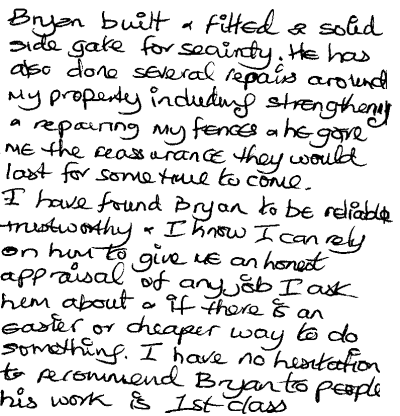 Bryan built & fitted a solid
side gate for security. He has
also done several repairs around
my property including strengthening
& repairing my fences & he gave
me the reassurance they would
last for some time to come.
I have found Bryan to be reliable
trustworthy & I know I can rely
on him to give me an honest
appraisal of any job I ask
him about & if there is an
easier or cheaper way to do
something. I have no hesitation
to recommend Bryan to people
his work is 1st class